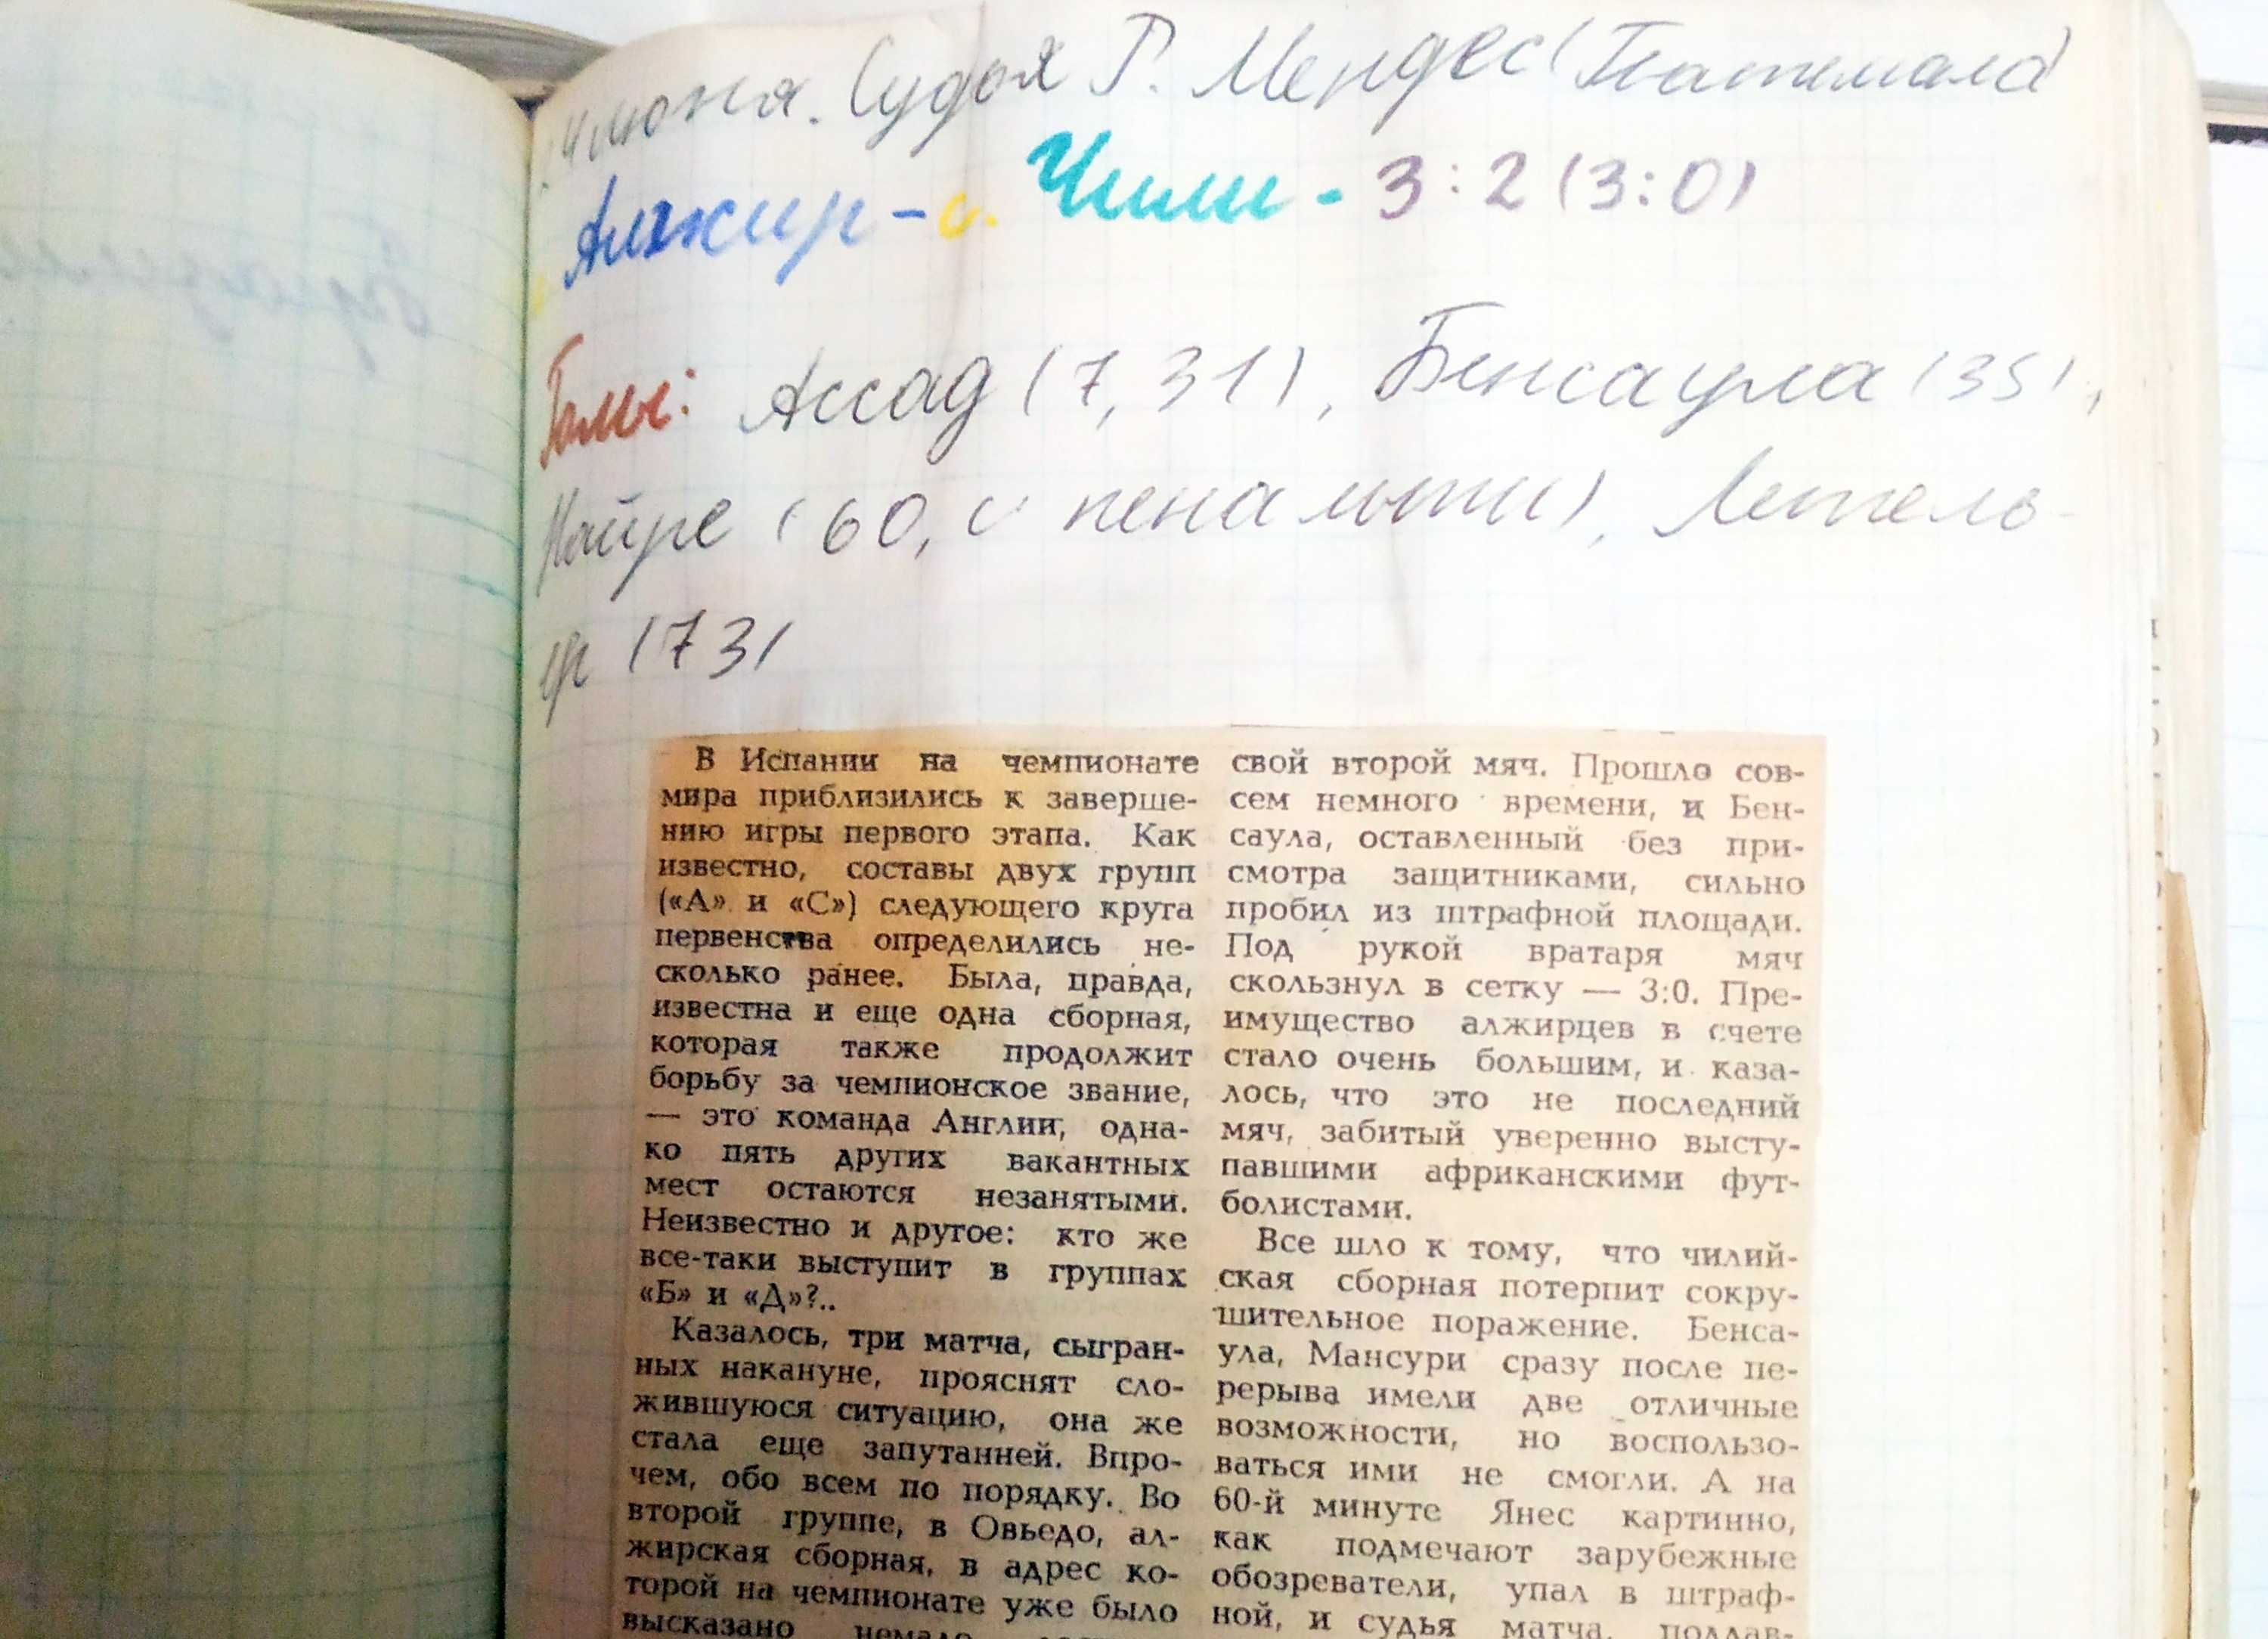 июня. Судья Р. Мендес (Гватемала)
Алжир - с. Чили - 3:2 (3:0)
Голы: Ассад (7, 31), Бенсаула (35),
Нейра (60, с пенальти), Летель-
ер (73)
В Испании на чемпионате
мира приблизились к заверше-
нию игры первого этапа. Как
известно, составы двух групп
(«А» и «С») следующего круга
первенства определились не-
сколько ранее. Была, правда,
известна и еще одна сборная,
которая также продолжит
борьбу за чемпионское звание,
— это команда Англии, одна-
ко пять других вакантных
мест остаются незанятыми.
Неизвестно и другое: кто же
все-таки выступит в группах
«Б» и «Д»?..
Казалось, три матча, сыгран-
ных накануне, прояснят сло-
жившуюся ситуацию, она же
стала еще запутанней. Впро-
чем, обо всем по порядку. Во
второй группе, в Овьедо, ал-
жирская сборная, в адрес ко-
торой на чемпионате уже было
высказано немало
свой второй мяч. Прошло сов-
сем немного времени, и Бен-
саула, оставленный без при-
смотра защитниками, сильно
пробил из штрафной площади.
Под рукой вратаря мяч
скользнул в сетку — 3:0. Пре-
имущество алжирцев в счете
стало очень большим, и каза-
лось, что это не последний
мяч, забитый уверенно высту-
павшими африканскими фут-
болистами.
Все шло к тому, что чилий-
ская сборная потерпит сокру-
шительное поражение. Бенса-
ула, Мансури сразу после пе-
рерыва имели две отличные
возможности, но воспользо-
ваться ими не смогли. А на
60-й минуте Янес картинно,
как подмечают зарубежные
обозреватели, упал в штраф-
ной, и судья матча, поддав-